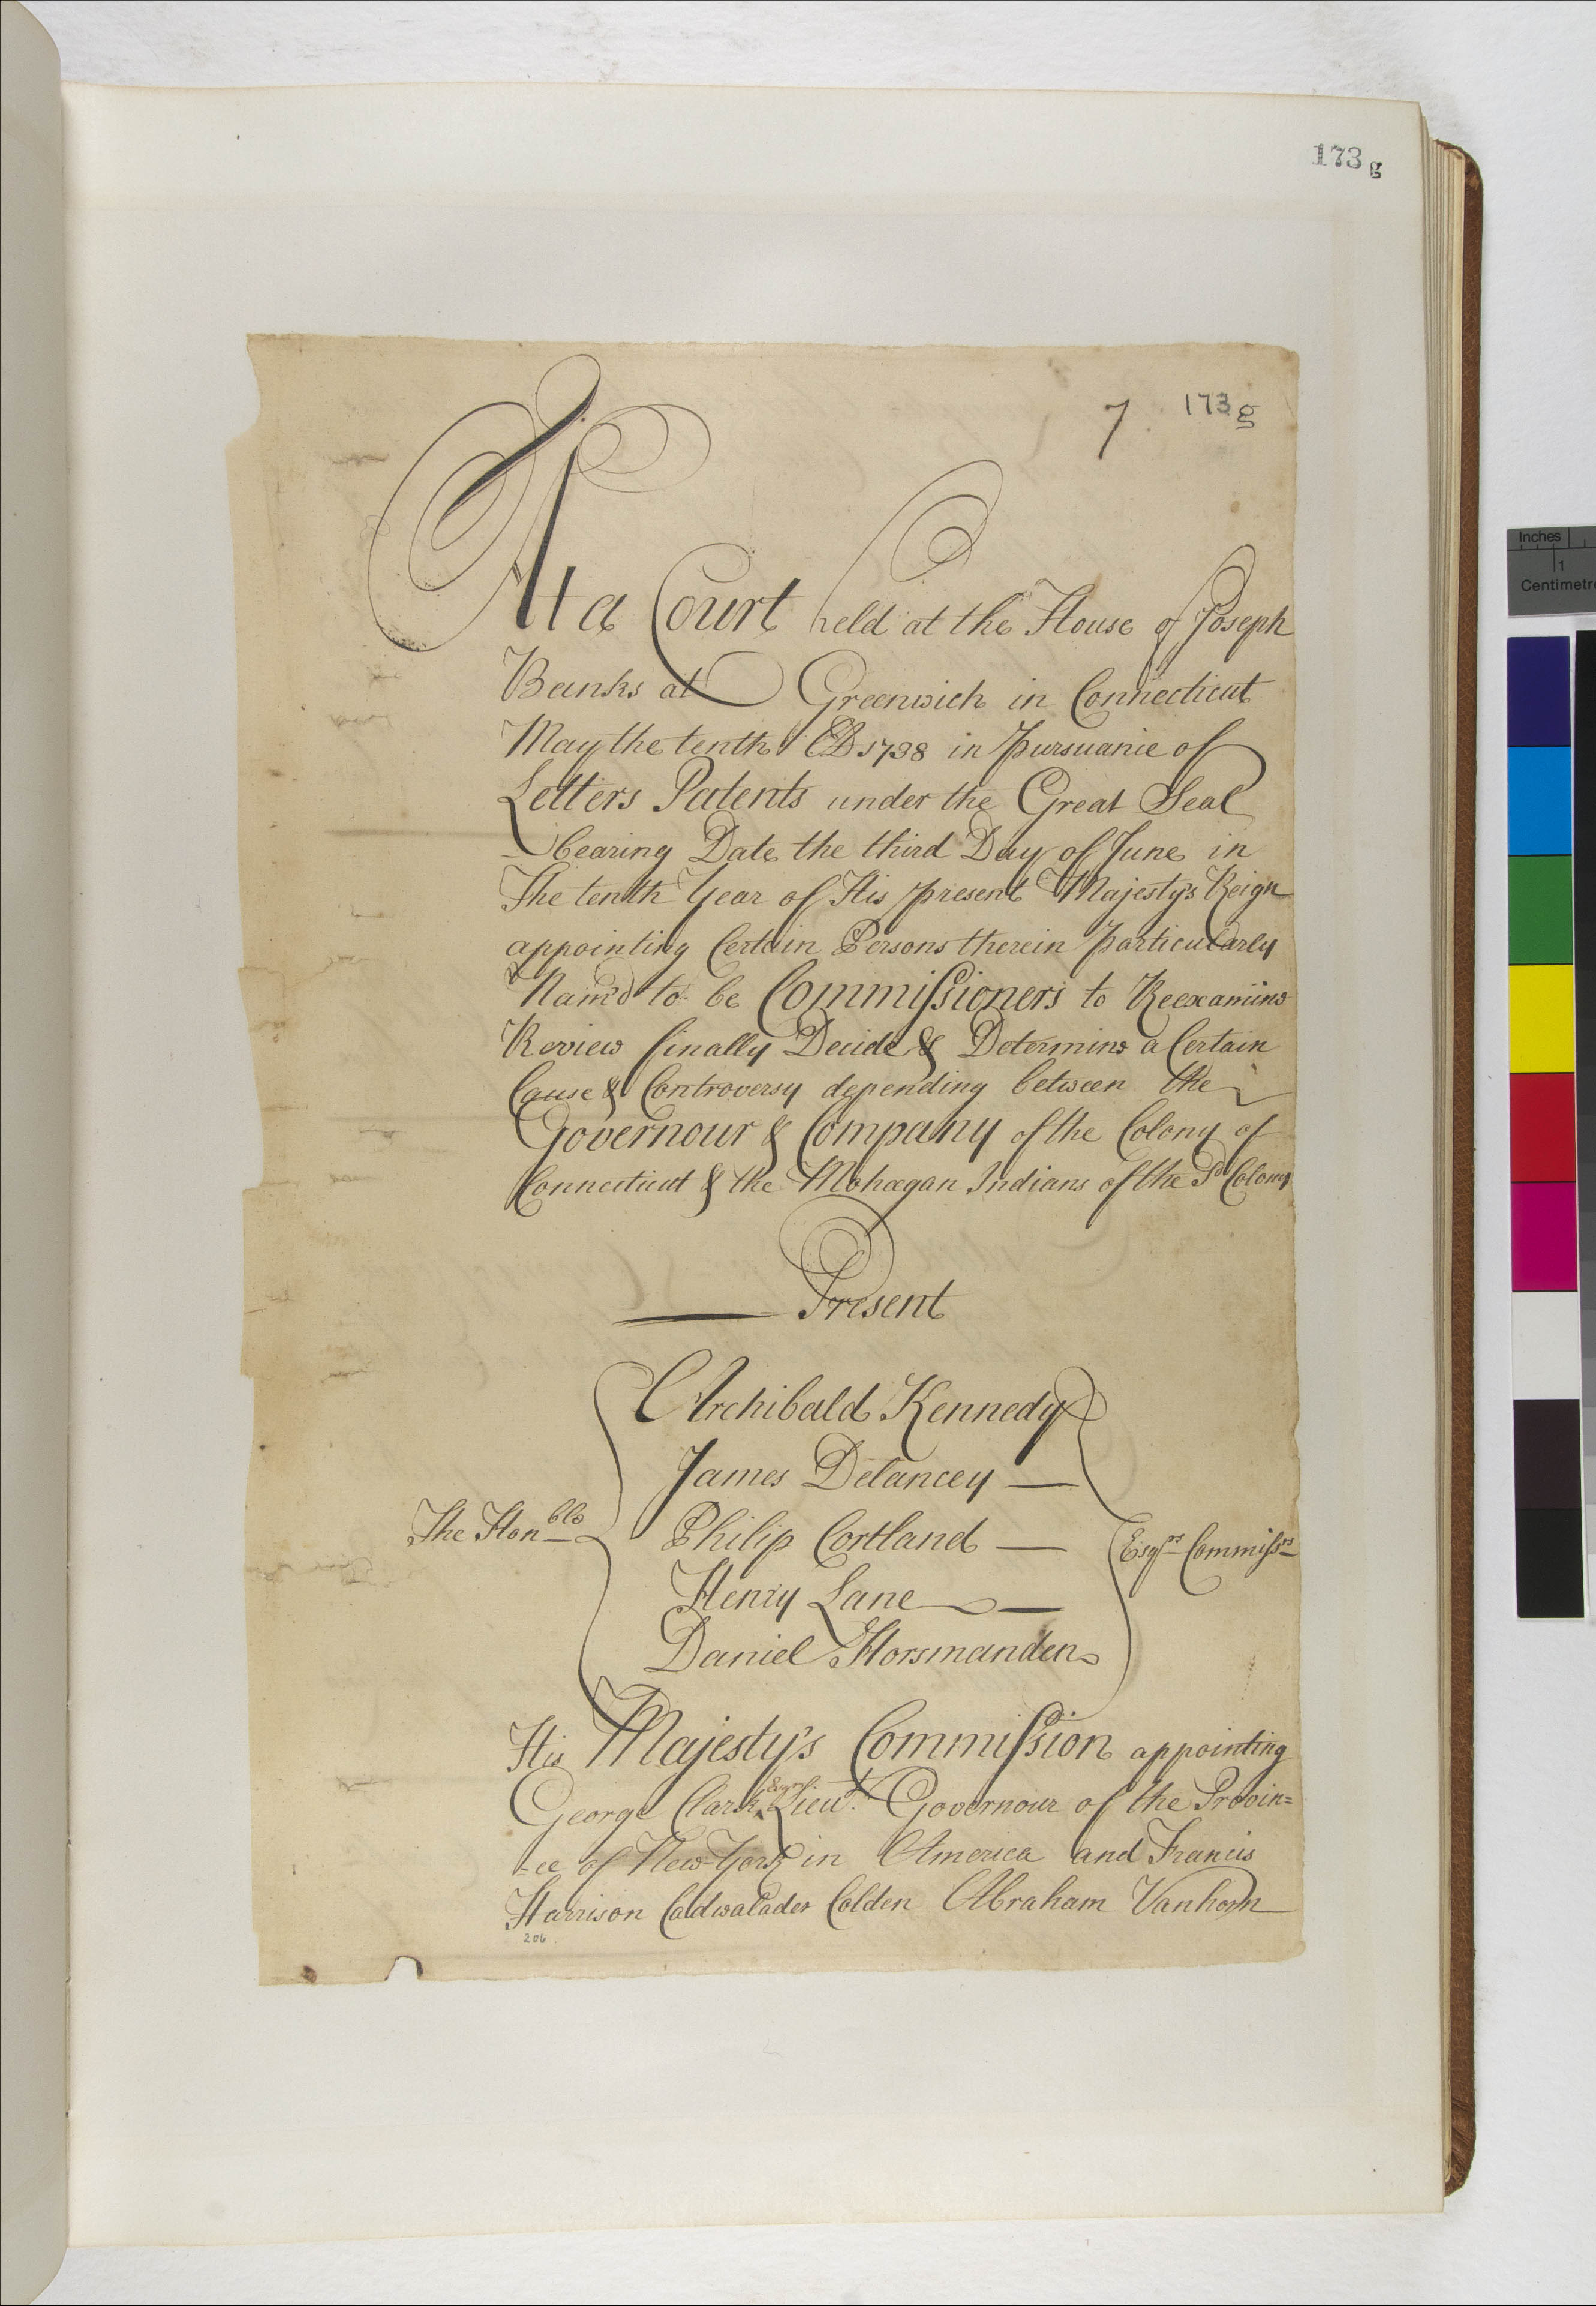 173 g
7 173 g
At a Court held at the House of Joseph
Banks at Greenwich in Connecticut
May the tenth AD 1738 in pursuance of
Letters Patents under the Great Seal
bearing Date the third Day of June in
The tenth Year of His present Majesty's Reign
appointing Certain Persons therein particularly
Nam'd to be Commissioners to Reexamine
Review finally Decide & Determine a Certain
Cause & Controversy depending between the
Governour & Company of the Colony of
Connecticut & the Mohegan Indians of the Sd Colony
Present
Archibald Kennedy
James Delancey
The Honble Philip Cortland Esqrs Commissrs
Henry Lane
Daniel Horsmanden
His Majesty's Commission appointing
George Clark Esqr Lieut. Governour of the Provin=
-ce of New-York in America and Francis
Harrison Cadwalader Colden Abraham Vanhorn
206
Inches
1
Centimetre